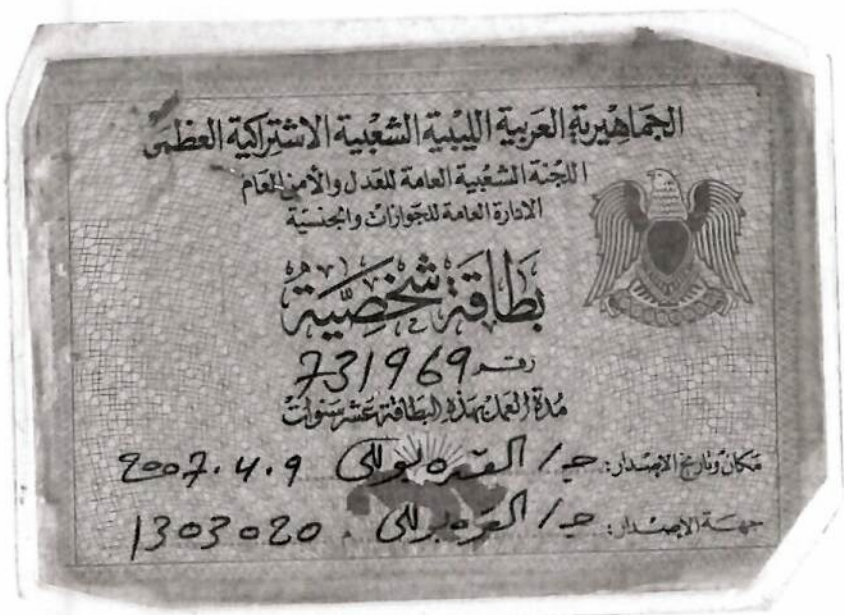 الجماهيرية العربية الليبية الشعبية الاشتراكية العظمى
اللجنة الشعبية العامة للعدل والأمن العام
الادارة العامة للجوازات والجنسية
بطاقة شخصية
رقم 731969
مدة العمل بهذه البطاقة عشر سنوات
مكان وتاريخ الاصدار: ج / القره بوللي 2007.4.9
جهة الاصدار: ج / القره بوللي . 1303020